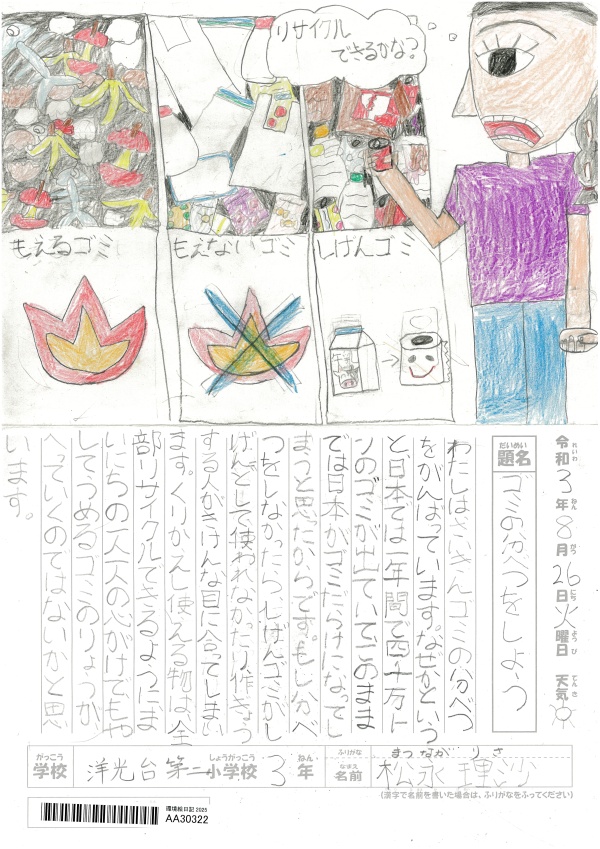 リサイクル
できるかな?
もえるゴミ
もえないゴミ
しげんゴミ
令和3年8月26日火曜日 天気
れいわ ねん がつ にち ようび てんき
だいめい
題名
ゴミの分べつをしよう
わたしはさいきんゴミの分べつ
をがんばっています。なぜかという
と、日本では一年間で四千万ト
ンのゴミが出ていてこのまま
では日本がゴミだらけになってし
まうと思ったからです。もし分べ
つをしなかったら、しげんゴミがし
げんとして使われなかったり、作ぎょう
する人がきけんな目に合ってしまい
ます。くりかえし使える物は、全
部リサイクルできるようにしま
いにちの一人一人の心がけでもや
してうめるゴミのりょうが
へっていくのではないかと思
います。
がっこう しょうがっこう ねん ふりがな まつ なが り さ
学校 洋光台第二小学校 3年 なまえ 名前 松永理沙
(漢字で名前を書いた場合は、ふりがなをふってください)
環境絵日記 2025
AA30322